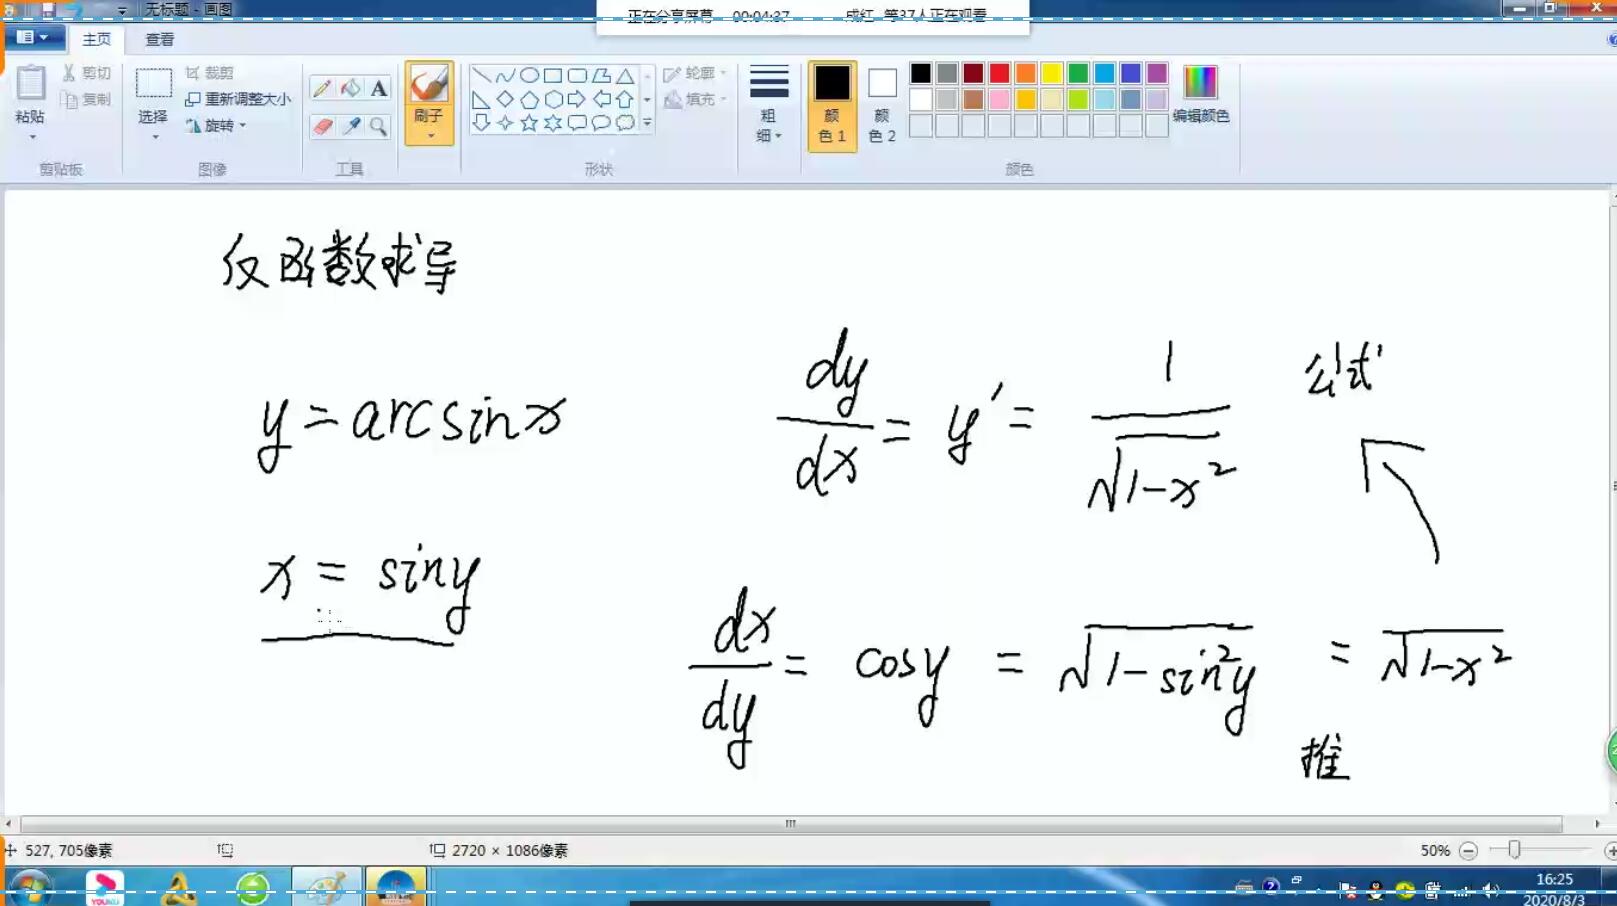 无标题 - 画图
正在分享屏幕 00:04:37 成红 等37人正在观看
主页 查看
粘贴 剪切 复制 剪贴板
选择 裁剪 重新调整大小 旋转 图像
A 工具
刷子
轮廓 填充 形状
粗细
颜色 1 颜色 2 编辑颜色 颜色
反函数求导
y = arcsinx
dy/dx = y' = 1/√(1-x²) 公式
x = siny
dx/dy = cosy = √(1-sin²y) = √(1-x²)
推
527, 705像素 2720 × 1086像素 50%
YOUKU
16:25
2020/8/3